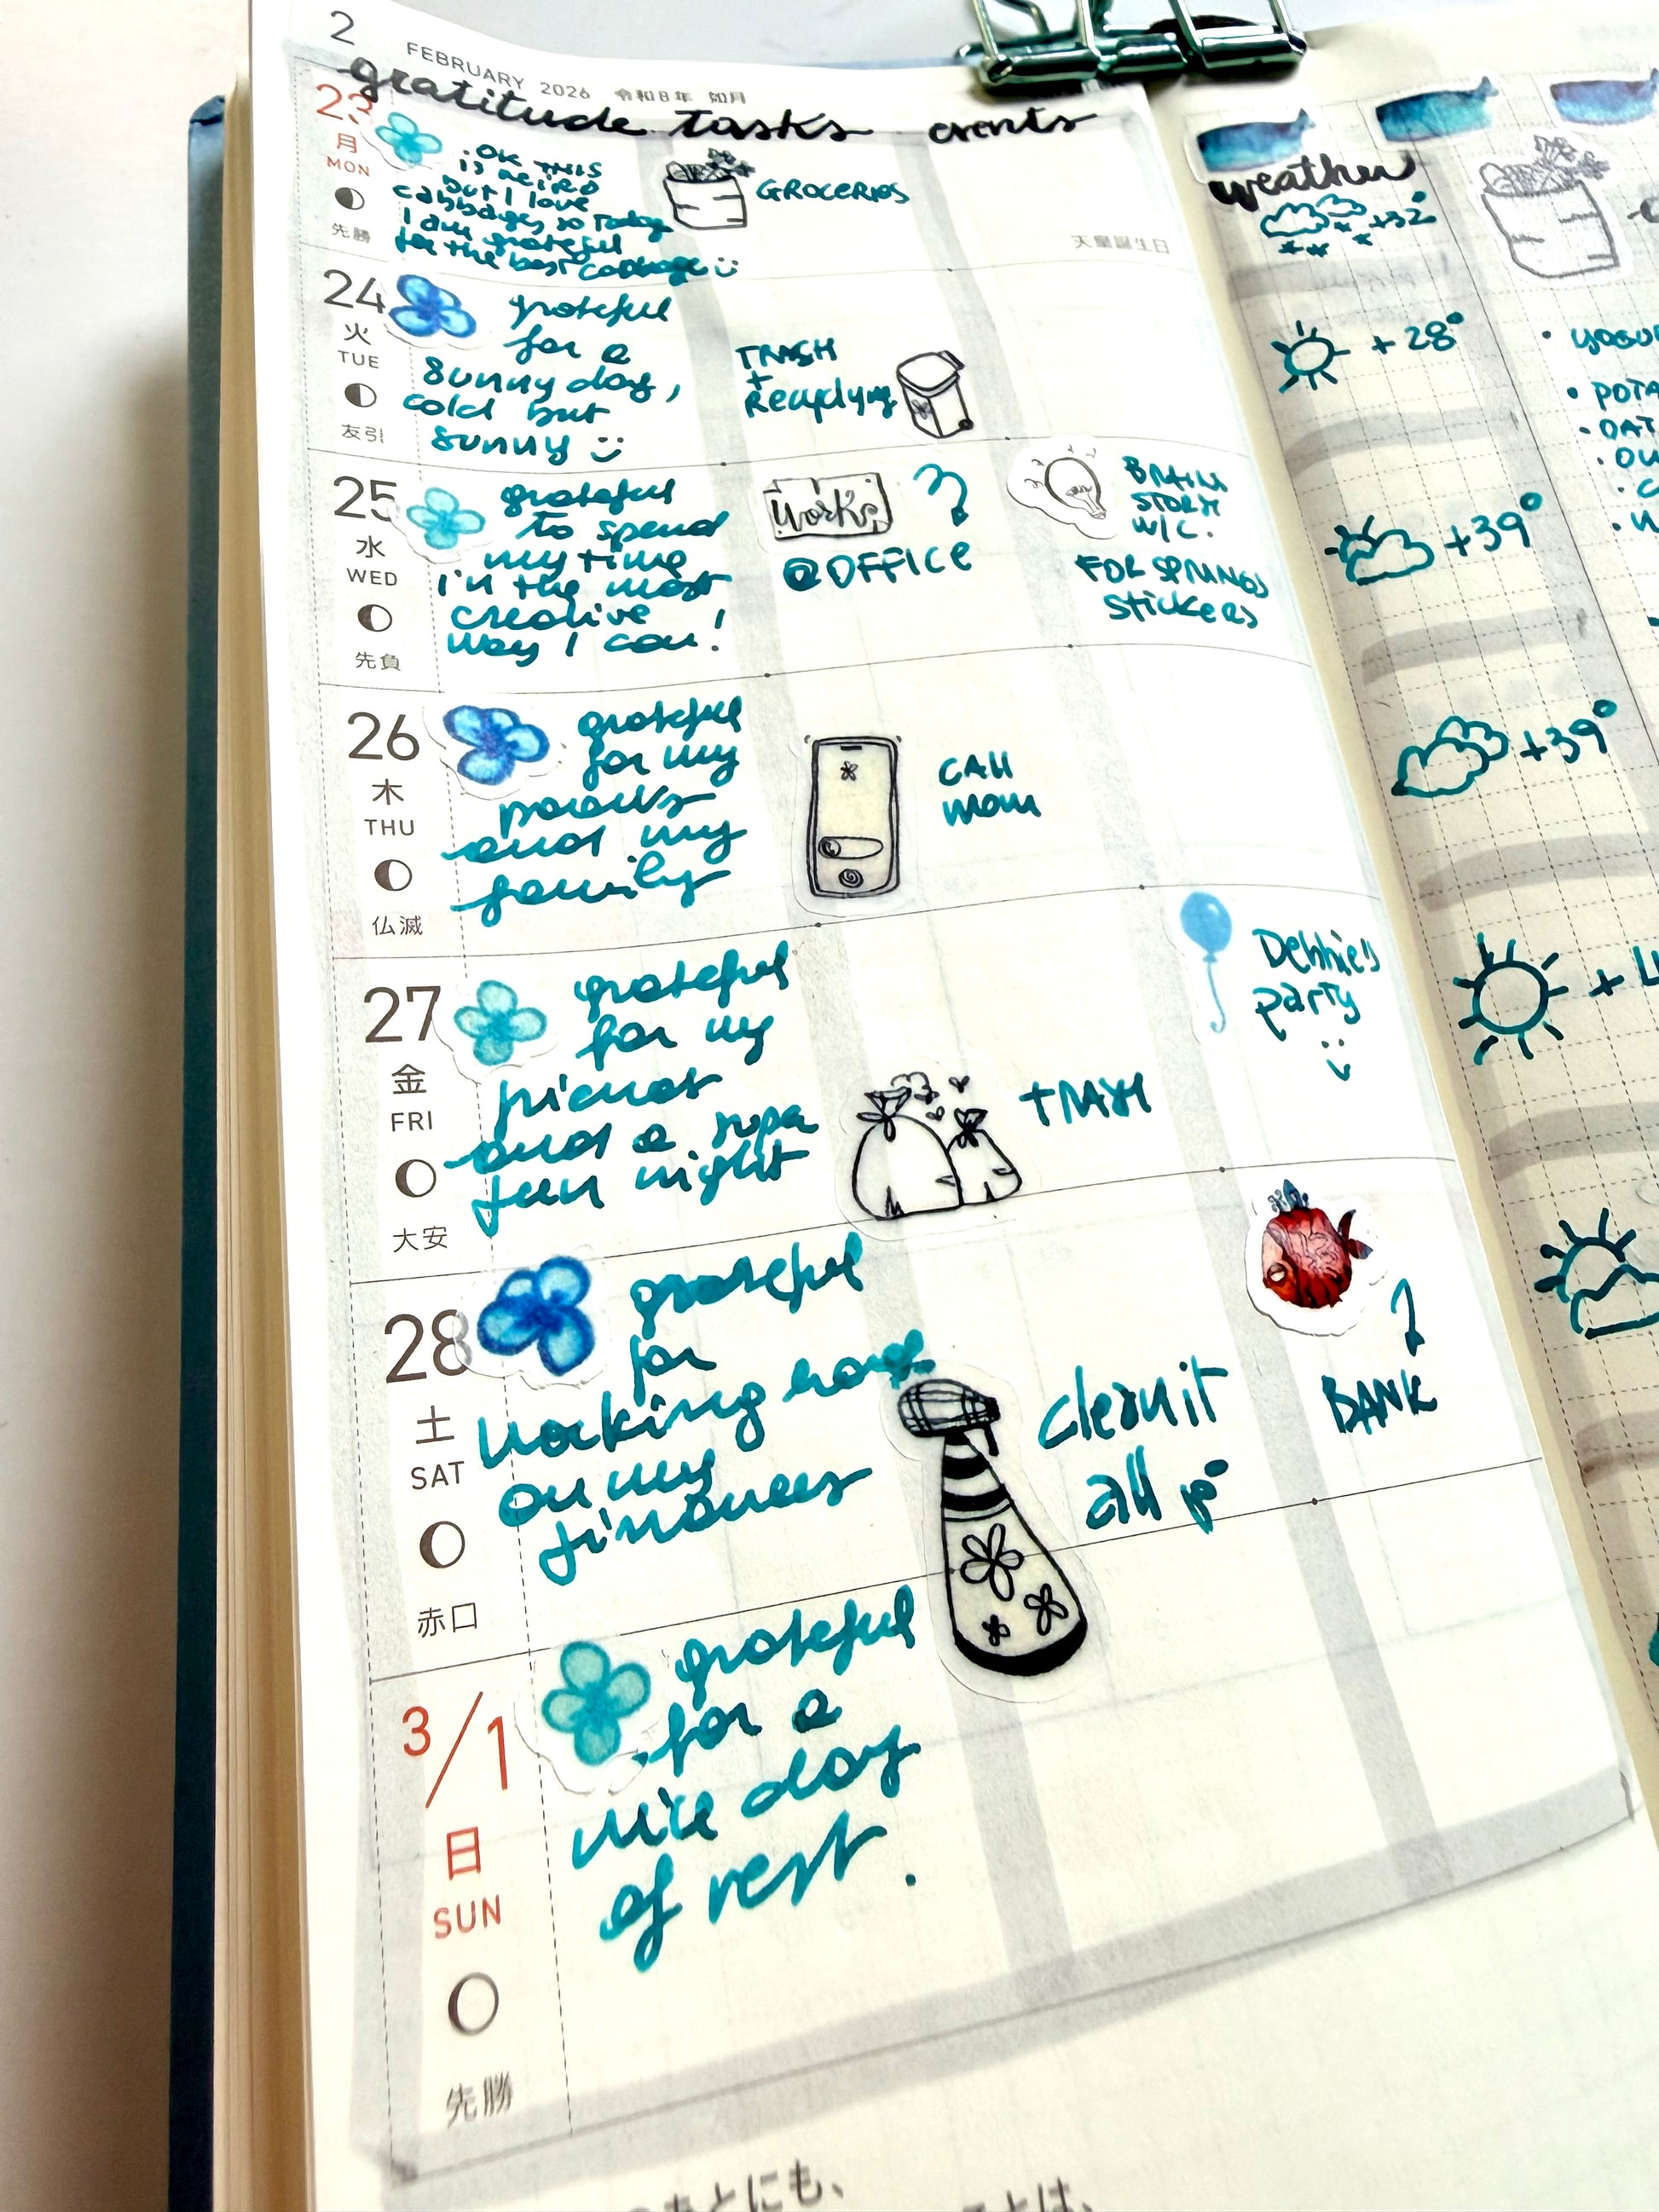 2
FEBRUARY 2026 令和8年 如月
gratitude tasks events
weather
23
月
MON
先勝
OK THIS
is weird
but I love
cabbages, so today
I am grateful
for the best cabbage :)
GROCERIES
天皇誕生日
+32°
24
火
TUE
友引
grateful
for a
sunny day,
cold but
sunny :)
TRASH
+
Recycling
+28°
25
水
WED
先負
grateful
to spend
my time
in the most
creative
way I can!
Works
@OFFICE
BRAIN
STORM
W/C.
FOR SPRING
Stickers
+39°
26
木
THU
仏滅
grateful
for my
parents
and my
family
CALL
mom
+39°
27
金
FRI
大安
grateful
for my
friends
and a super
fun night
TRASH
Debbie's
party
:)
+4
28
土
SAT
赤口
grateful
for
working hard
on my
finances
clean it
all up
BANK
3/1
日
SUN
先勝
grateful
for a
nice day
of rest.
• POTA
• OAT
のあとにも、
ことは、